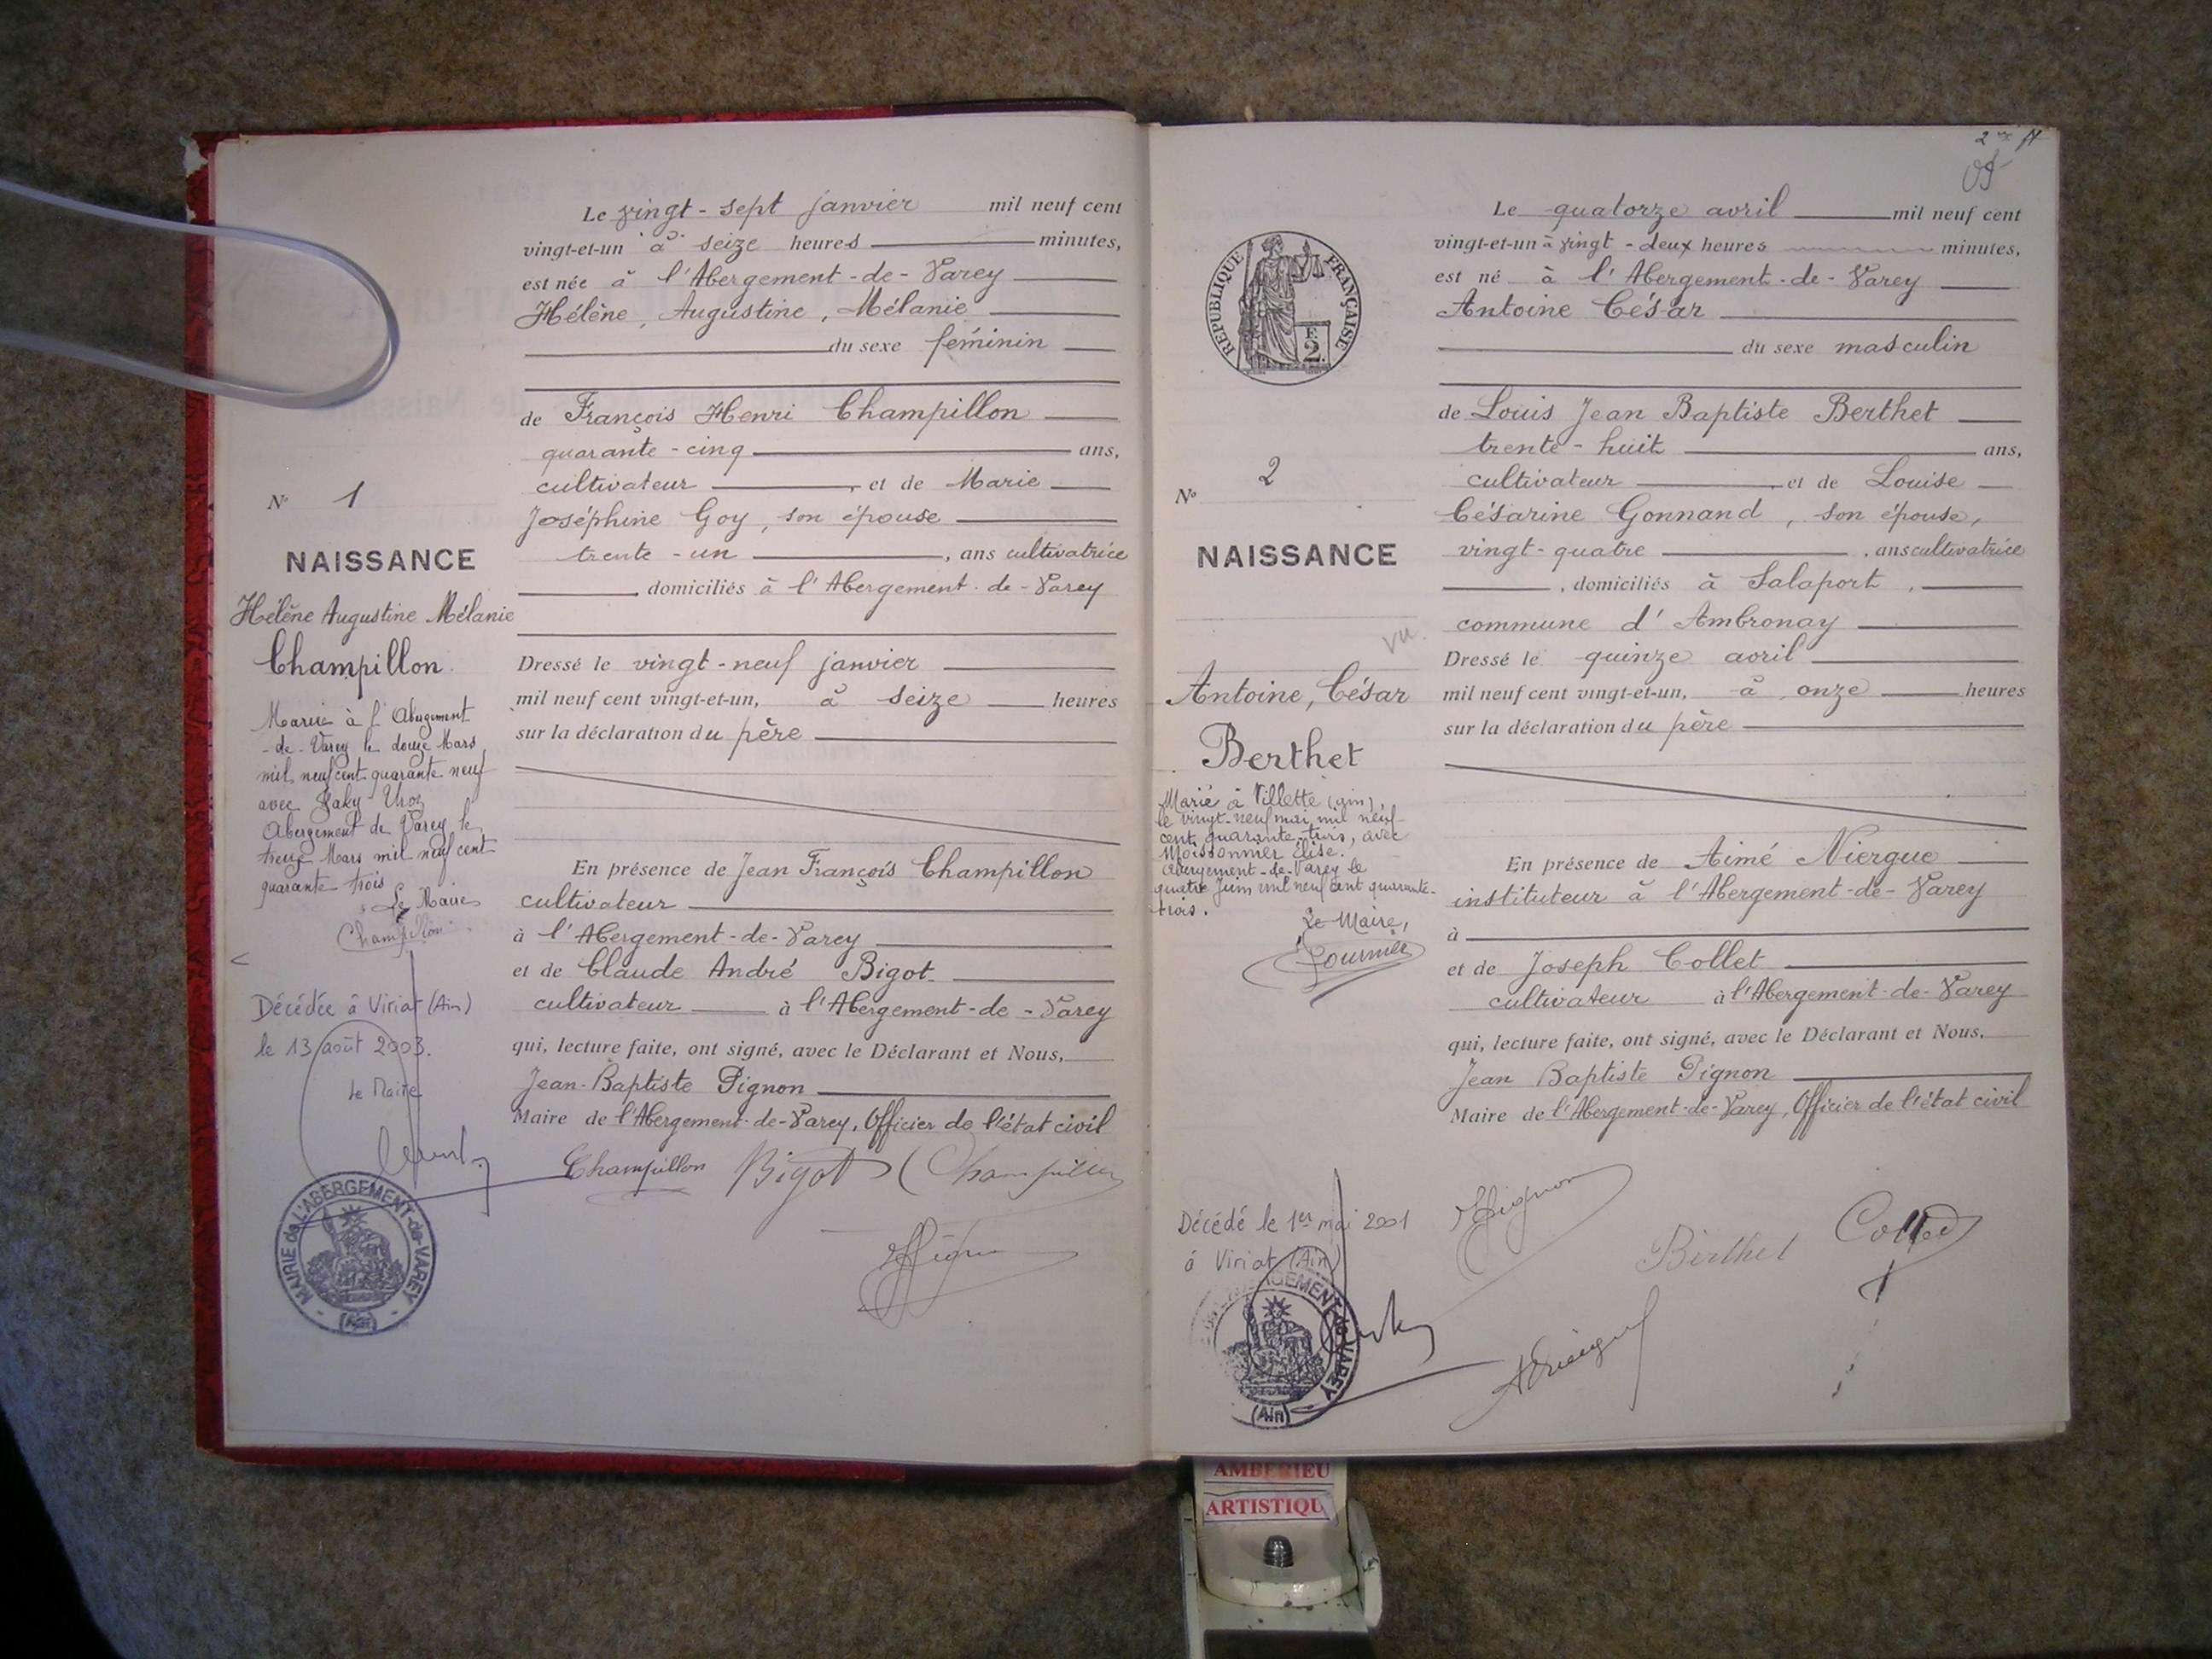 Le vingt-sept janvier mil neuf cent
vingt-et-un à seize heures minutes,
est née à l'Abergement-de-Varey
Hélène, Augustine, Mélanie
du sexe féminin
de François Henri Champillon
quarante-cinq ans,
cultivateur, et de Marie
Joséphine Goy, son épouse
trente-un, ans cultivatrice
, domiciliés à l'Abergement-de-Varey
Dressé le vingt-neuf janvier
mil neuf cent vingt-et-un, à seize heures
sur la déclaration du père
En présence de Jean François Champillon
cultivateur
à l'Abergement-de-Varey
et de Claude André Bigot
cultivateur à l'Abergement-de-Varey
qui, lecture faite, ont signé, avec le Déclarant et Nous,
Jean-Baptiste Pignon
Maire de l'Abergement-de-Varey, Officier de l'état civil
Champillon Bigot Champillon
N° 1
NAISSANCE
Hélène Augustine Mélanie
Champillon
Mariée à l'Abergement
-de-Varey le douze Mars
mil neuf cent quarante neuf
avec
Abergement de Varey le
Mars mil neuf cent
quarante trois
Le Maire
Champillon
Décédée à Viriat (Ain)
le 13 août 2003.
Le Maire
MAIRIE de L'ABERGEMENT-de-VAREY
(Ain)
2
Le quatorze avril mil neuf cent
vingt-et-un à vingt-deux heures minutes,
est né à l'Abergement-de-Varey
Antoine César
du sexe masculin
de Louis Jean Baptiste Berthet
trente-huit ans,
cultivateur, et de Louise
Césarine Gonnand, son épouse,
vingt-quatre, ans cultivatrice
, domiciliés à Salaport,
commune d'Ambronay
Dressé le quinze avril
mil neuf cent vingt-et-un, à onze heures
sur la déclaration du père
En présence de Aimé Niergue
instituteur à l'Abergement-de-Varey
à
et de Joseph Collet
cultivateur à l'Abergement-de-Varey
qui, lecture faite, ont signé, avec le Déclarant et Nous,
Jean Baptiste Pignon
Maire de l'Abergement-de-Varey, Officier de l'état civil
Pignon Berthet Collet
REPUBLIQUE FRANÇAISE
F.
2.
N° 2
NAISSANCE
vu.
Antoine, César
Berthet
Marié à Villette (Ain),
le vingt-neuf mai mil neuf
cent quarante-trois, avec
Moissonnier Elise.
Abergement-de-Varey le
quatre Juin mil neuf cent quarante-
trois.
Le Maire,
Fournier
Décédé le 1er mai 2001
à Viriat (Ain)
(Ain)
AMBERIEU
ARTISTIQU